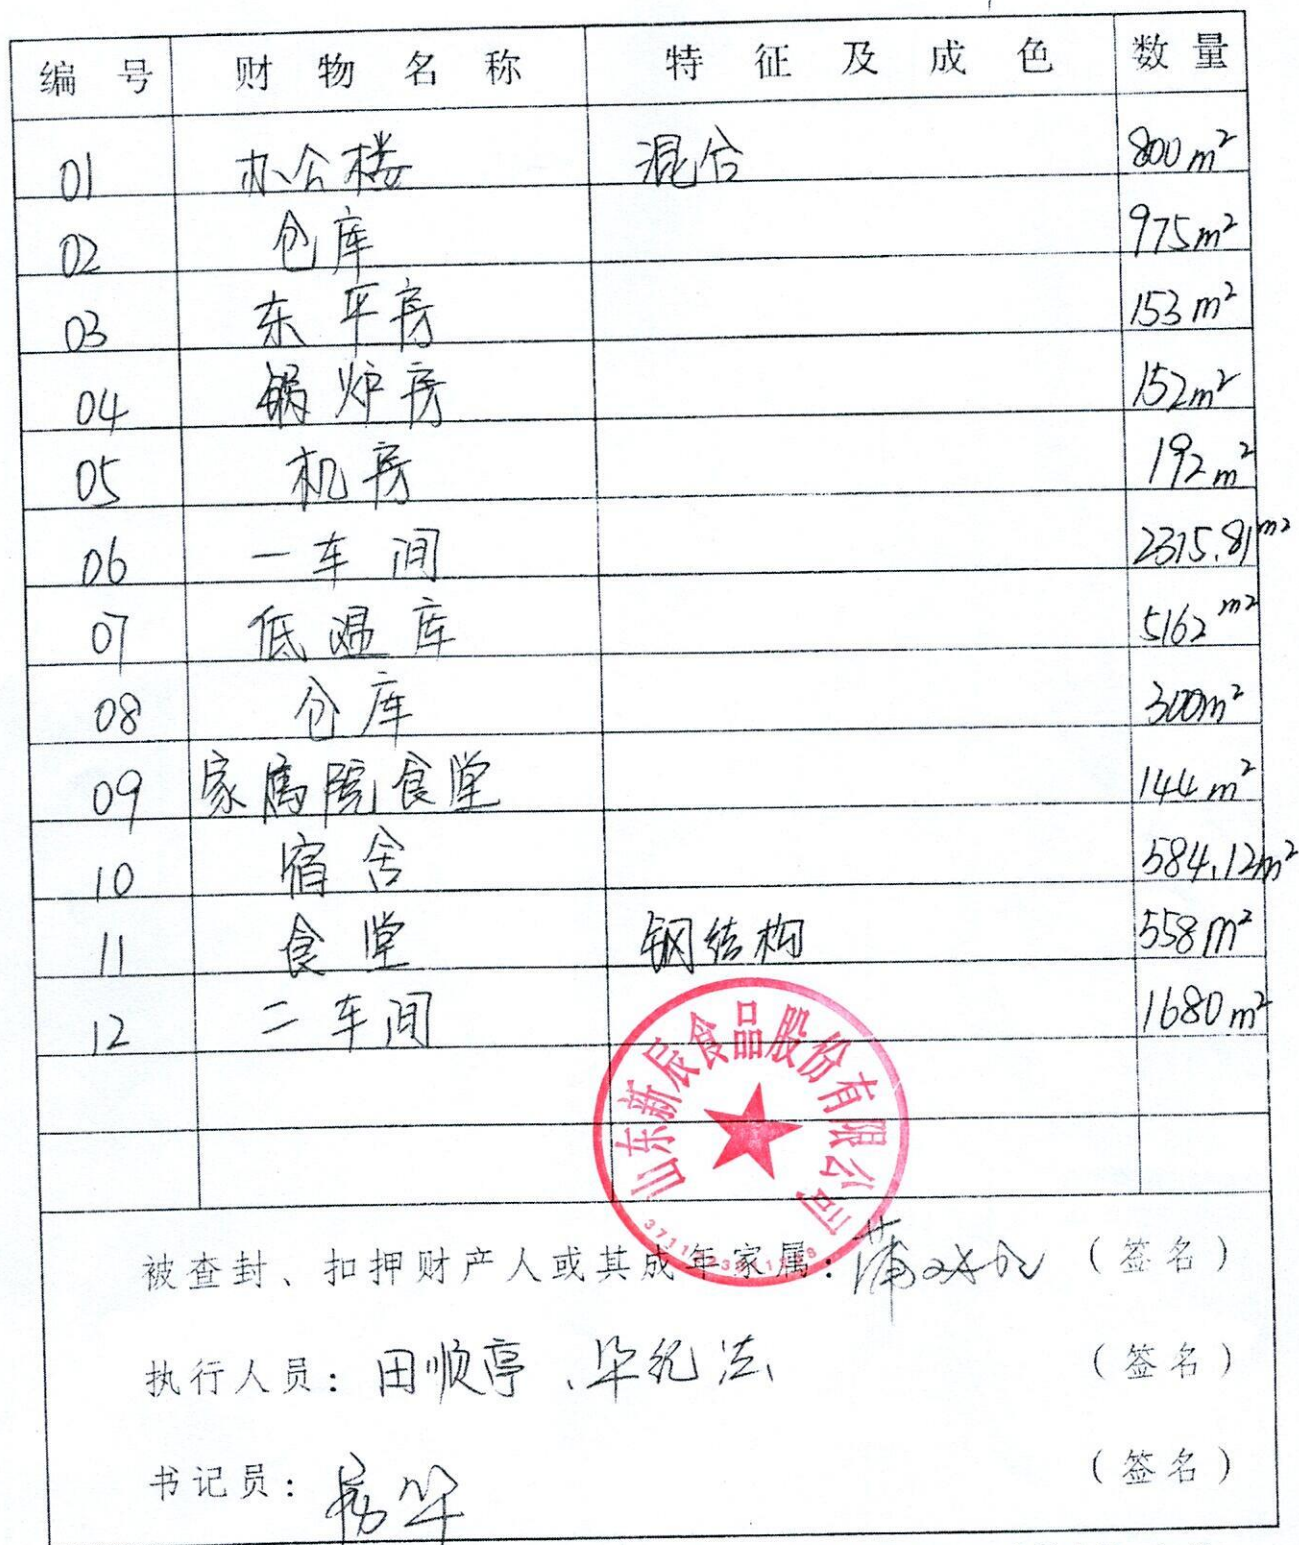 编号 财物名称 特征及成色 数量
01 办公楼 混合 800m²
02 仓库 975m²
03 东平房 153m²
04 锅炉房 152m²
05 机房 192m²
06 一车间 2315.81m²
07 低温库 5162m²
08 仓库 300m²
09 家属院食堂 144m²
10 宿舍 584.12m²
11 食堂 钢结构 558m²
12 二车间 1680m²
山东新辰食品股份有限公司
被查封、扣押财产人或其成年家属: (签名)
执行人员:田顺亭、毕纪法 (签名)
书记员: (签名)